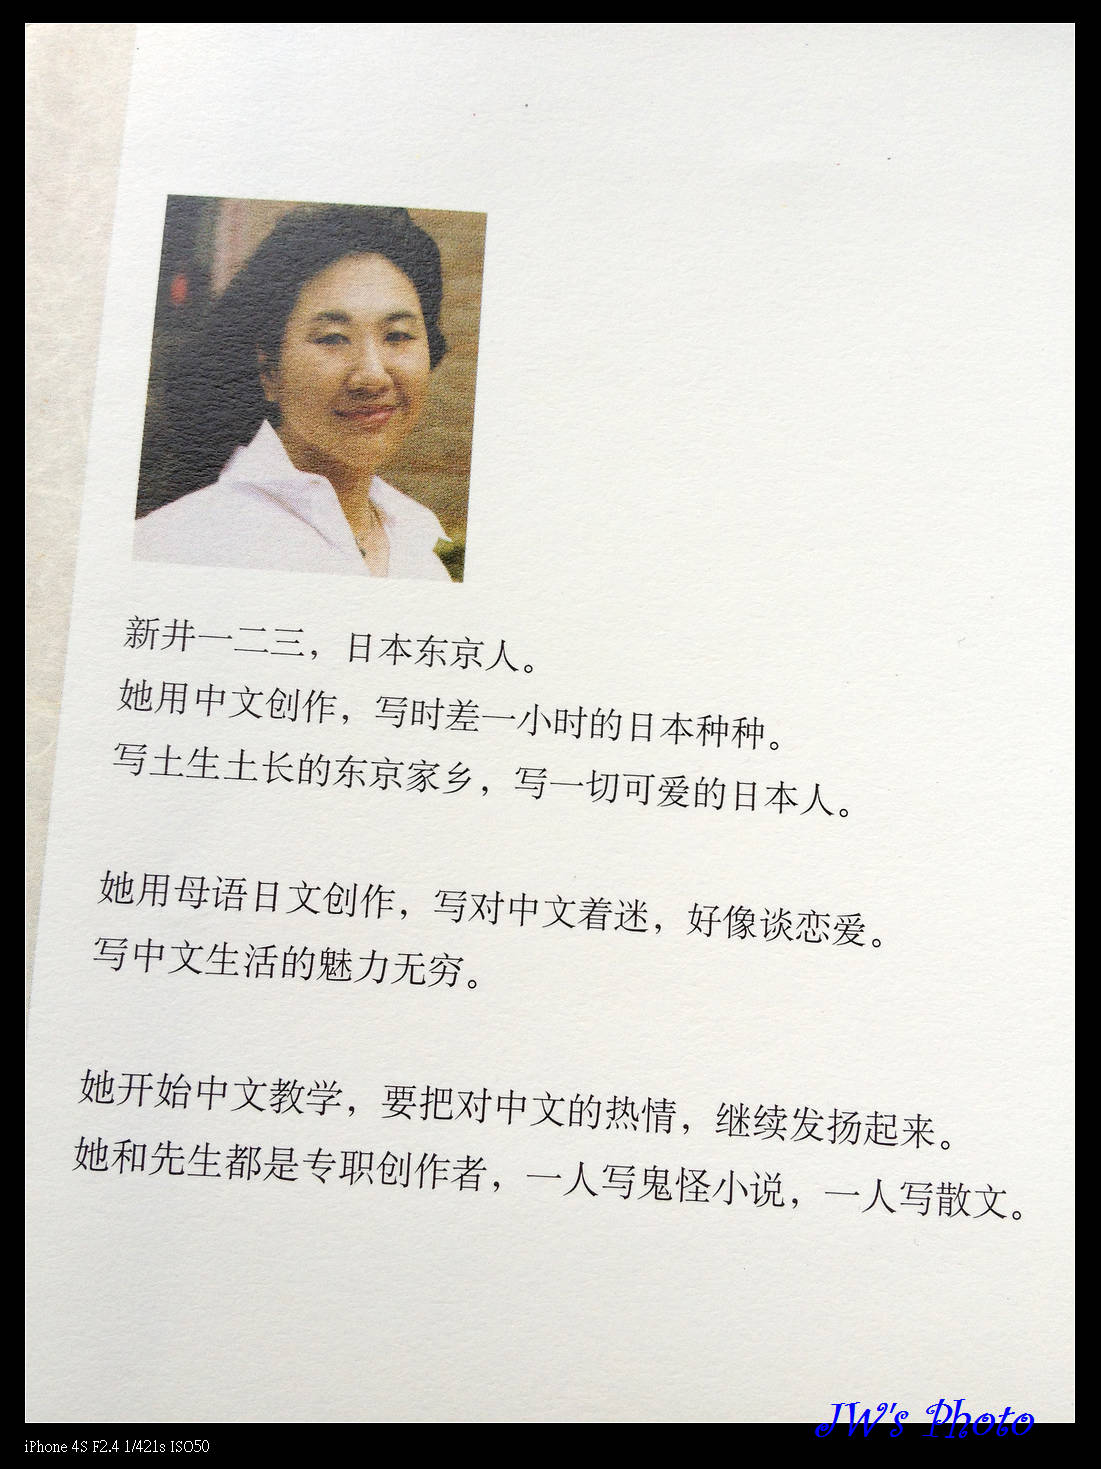 新井一二三，日本东京人。
她用中文创作，写时差一小时的日本种种。
写土生土长的东京家乡，写一切可爱的日本人。
她用母语日文创作，写对中文着迷，好像谈恋爱。
写中文生活的魅力无穷。
她开始中文教学，要把对中文的热情，继续发扬起来。
她和先生都是专职创作者，一人写鬼怪小说，一人写散文。
JW's Photo
iPhone 4S F2.4 1/421s ISO50